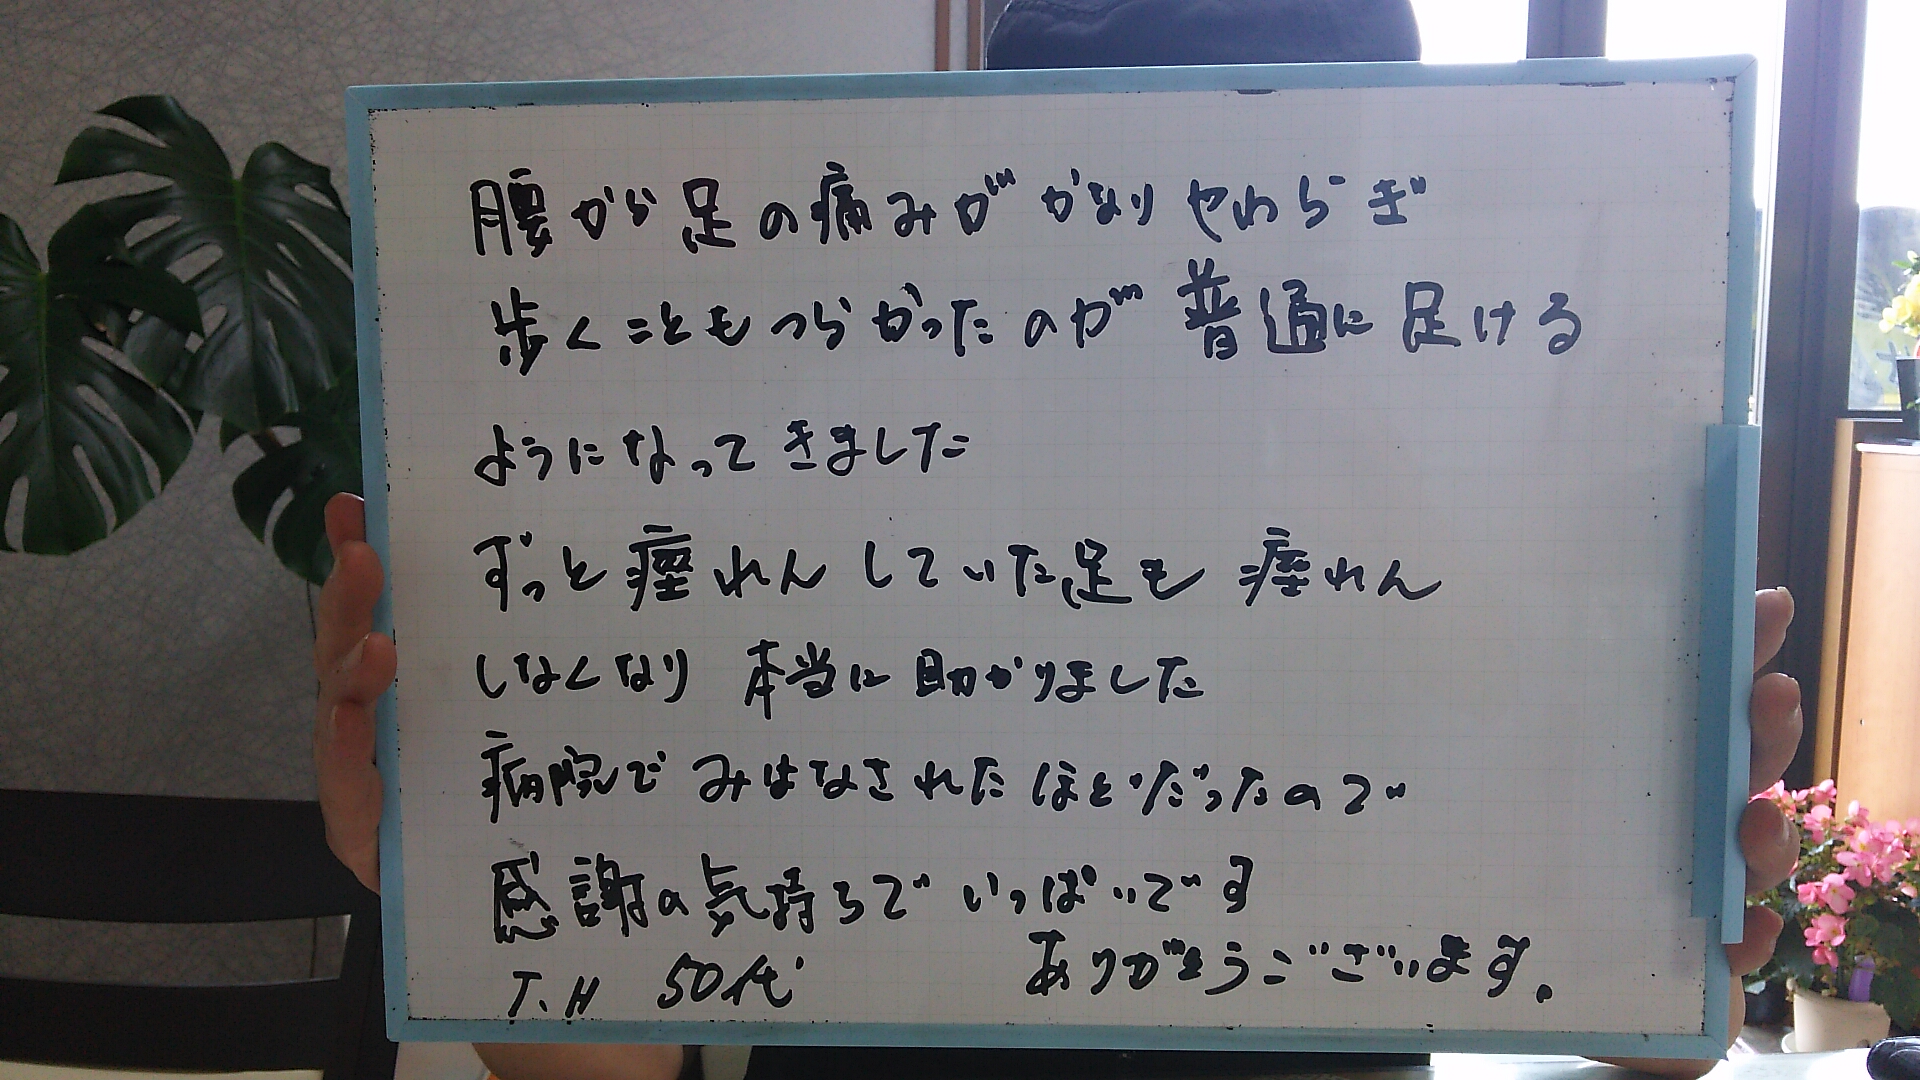 腰から足の痛みがかなりやわらぎ
歩くこともつらかったのが普通に足ける
ようになってきました
ずっと痙れんしていた足も痙れん
しなくなり 本当に助かりました
病院でみはなされたほどだったので
感謝の気持ちでいっぱいです
ありがとうございます。
T.H 50代